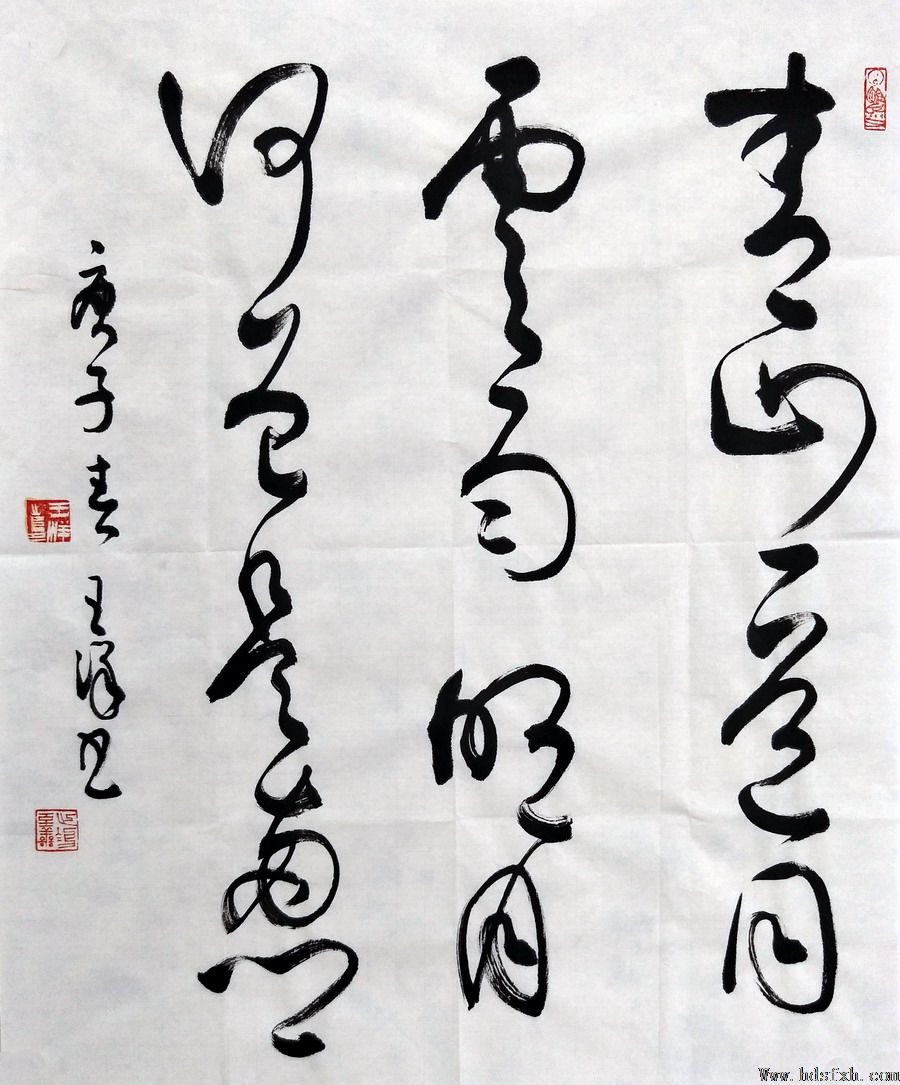 青山一道同
雲雨明月
何曾是兩鄉
庚子春 王书
Www.hdsfxh.com